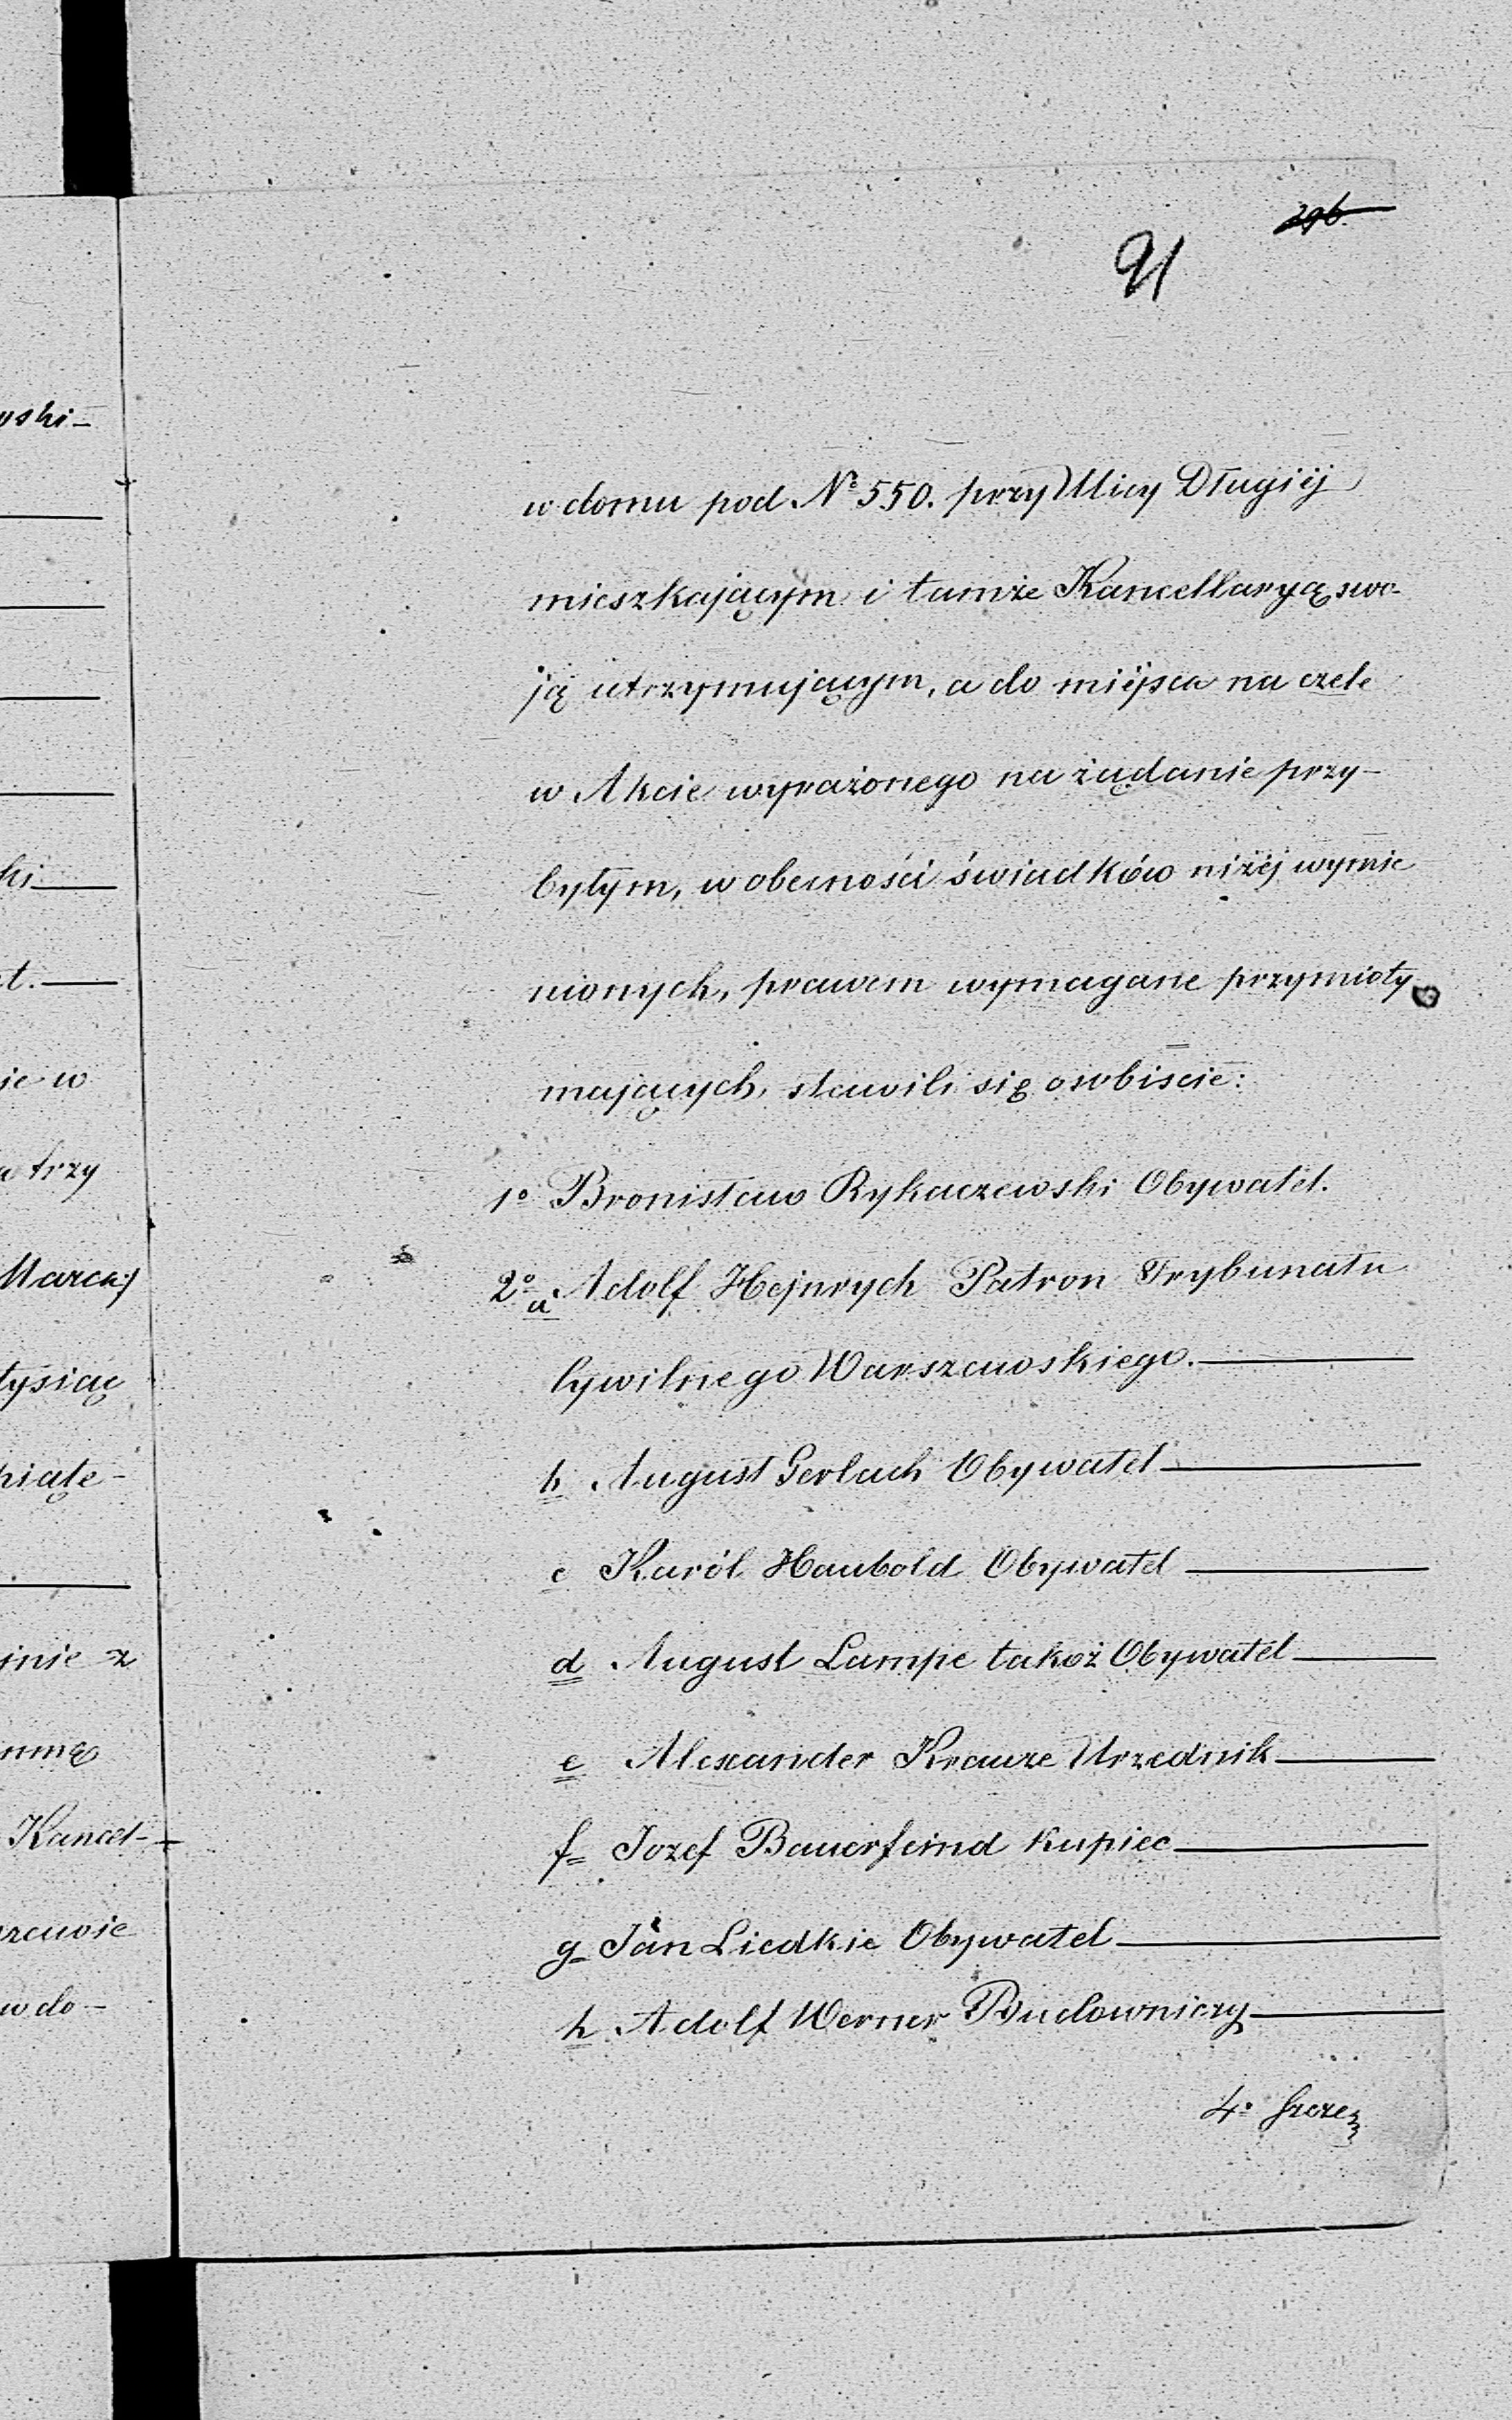 296
91
w domu pod № 550. przy Ulicy Długiéj
mieszkającym i tamże Kancellaryą swo-
ją utrzymującym, a do miéjsca na czele
w Akcie wyrażonego na żądanie przy-
byłym, w obecności świadków niżéj wymie
nionych, prawem wymagane przymioty
mających, stawili się osobiscie:
1º Bronisław Rykaczewski Obywatel.
2º a Adolf Hejnrych Patron Trybunatu
Cywilnego Warszawskiego.
b August Gerlach Obywatel
c Karól Haubold Obywatel
d August Lampe takoż Obywatel
e Alexander Krauze Urzednik
f Jozef Bauerfeind Kupiec
g Jan Liedkie Obywatel
h Adolf Werner Budowniczy
4º
oski-
ki
t.
ie w
a trzy
Marcaj
tysiąc
piąte-
jnie z
Kancel-
w do-